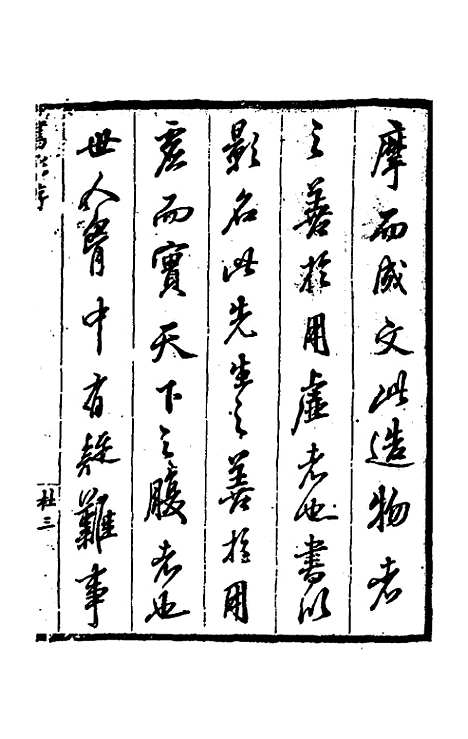 摩而成文此造物者
之善於用虛者也書以
影名此先生之善於用
虛而實天下之腹者也
世人胷中有疑難事
杜三